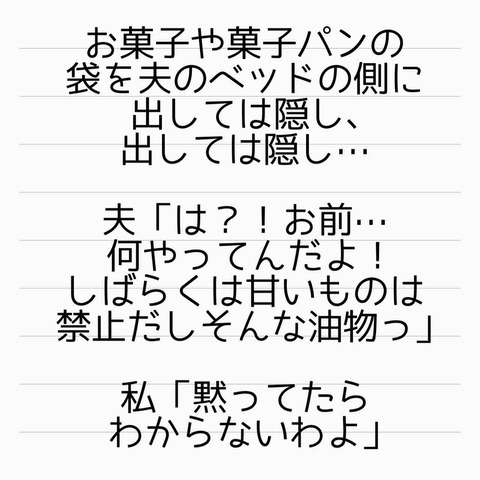 お菓子や菓子パンの
袋を夫のベッドの側に
出しては隠し、
出しては隠し…
夫「は？！お前…
何やってんだよ！
しばらくは甘いものは
禁止だしそんな油物っ」
私「黙ってたら
わからないわよ」